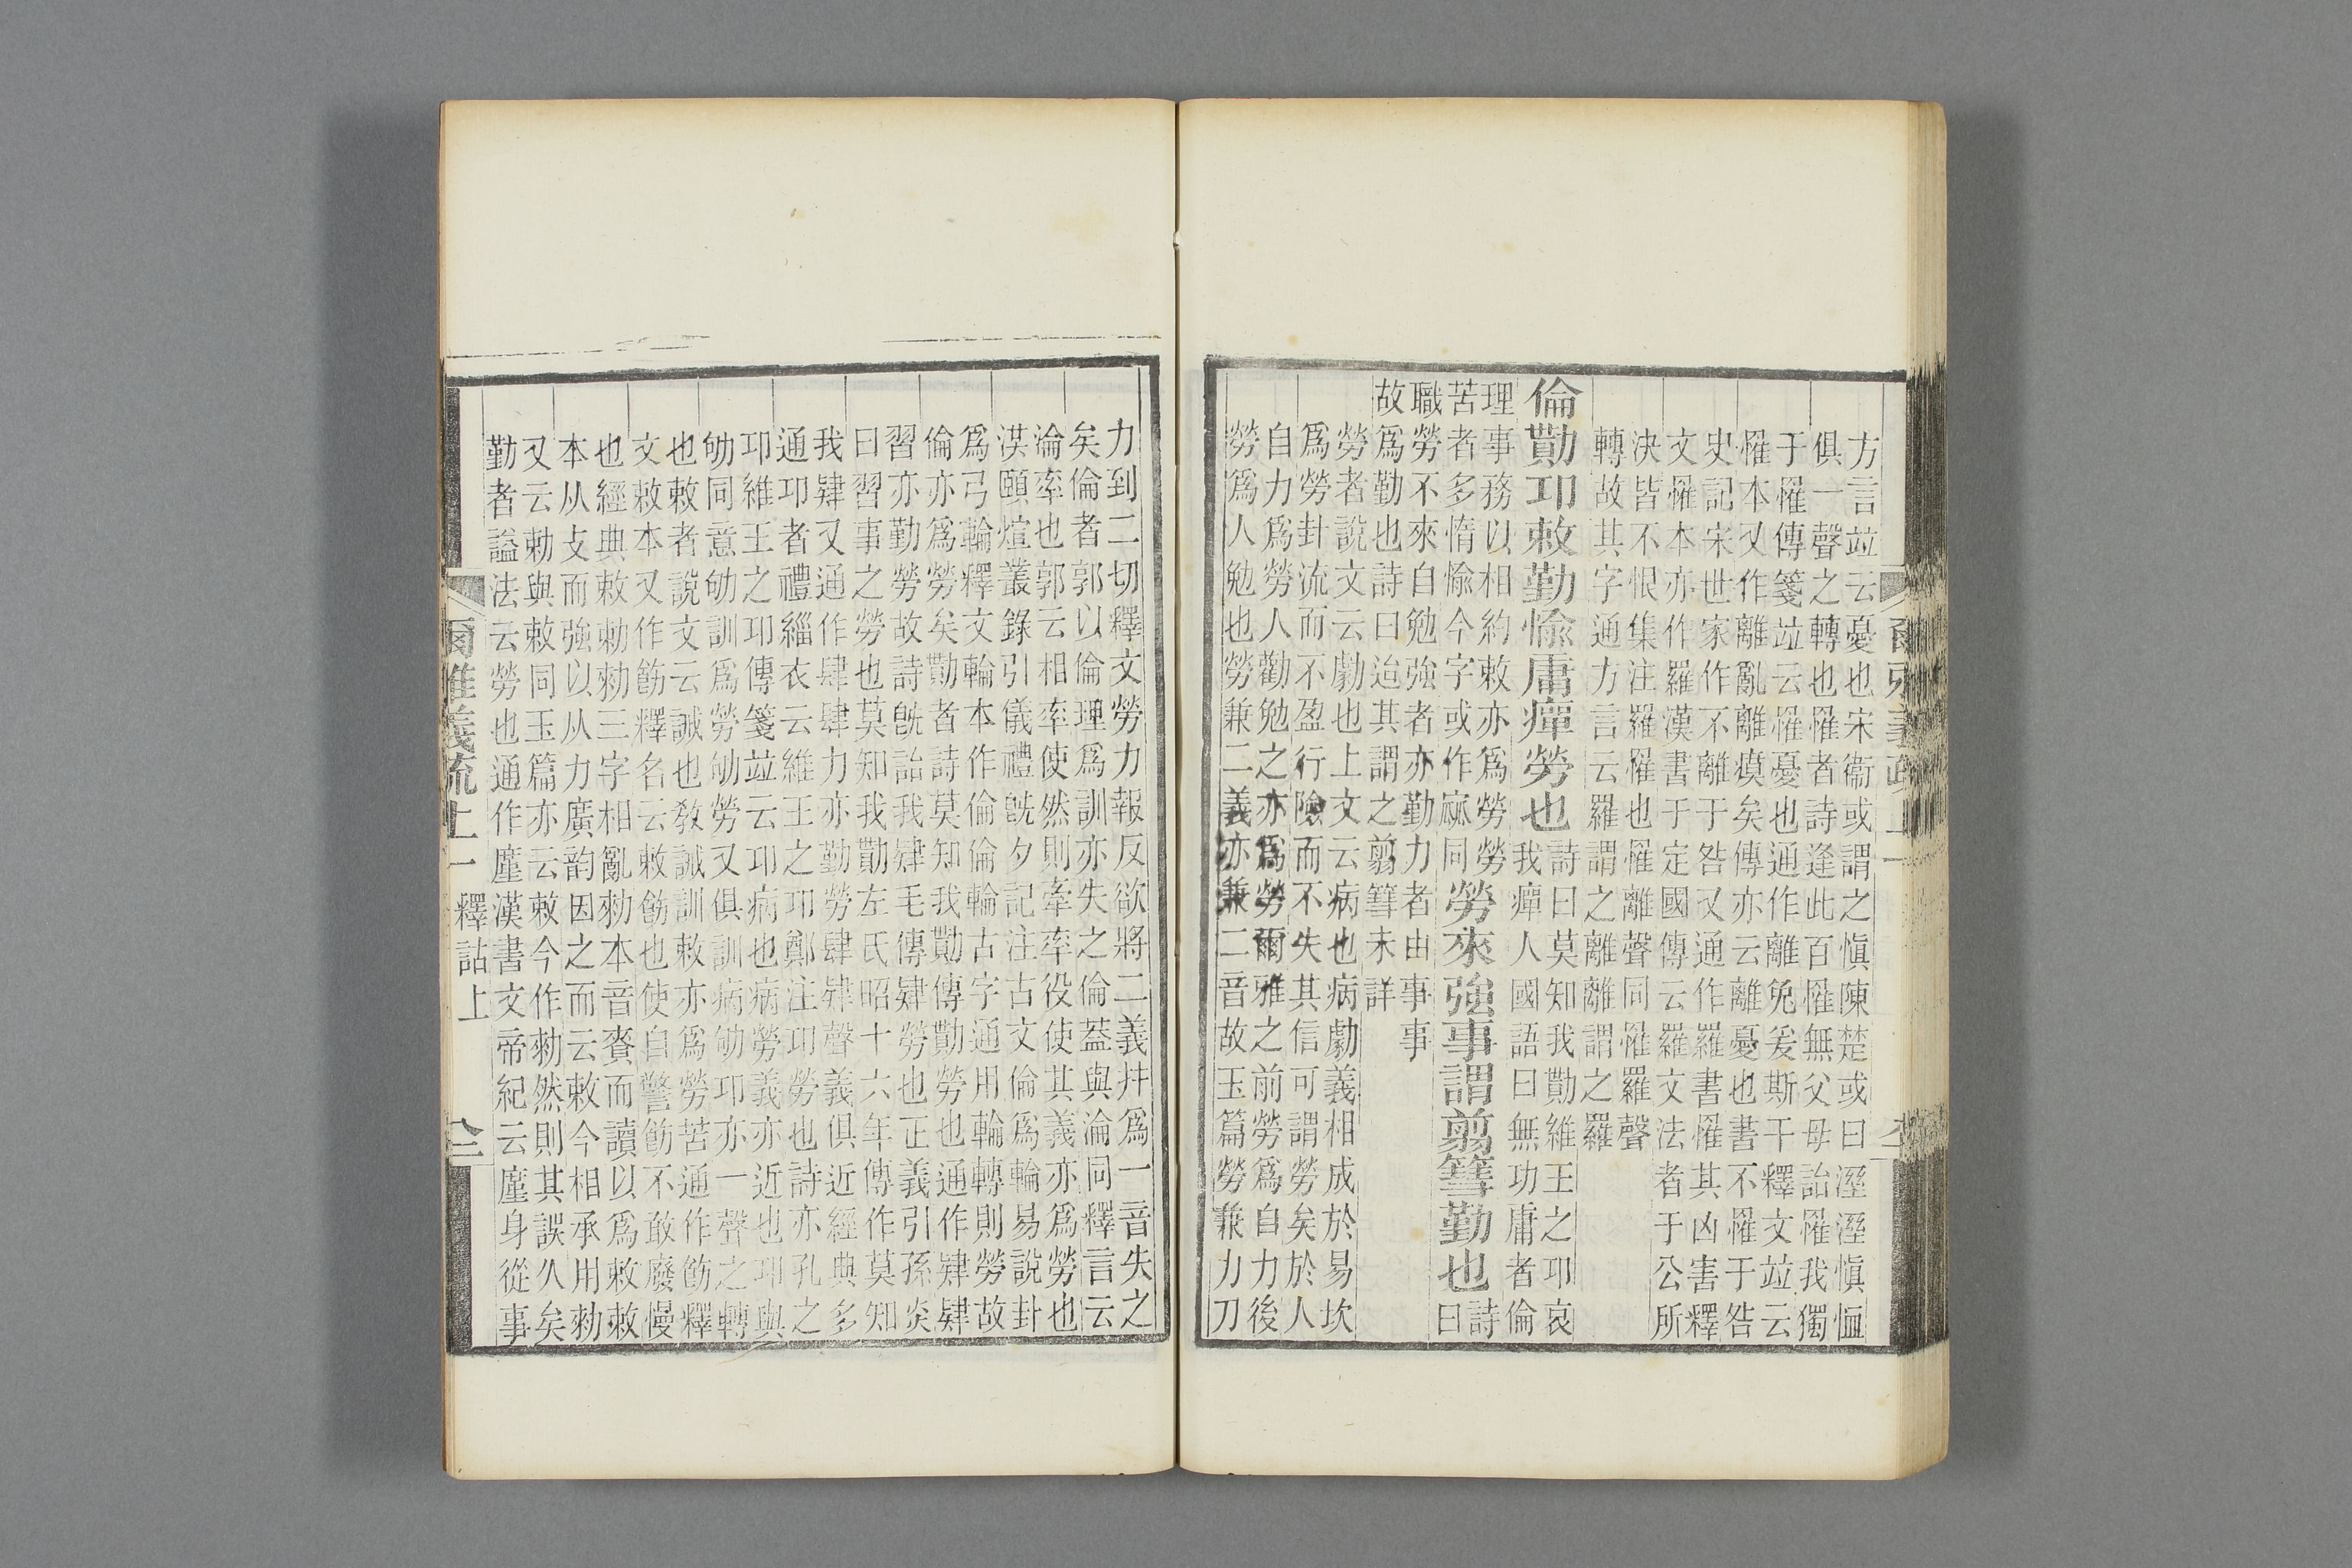 方言竝云憂也宋衞或謂之愼陳楚或曰溼溼愼恤
俱一聲之轉也罹者詩逢此百罹無父母詒罹我獨
于罹傳箋竝云罹憂也通作離兔爰斯干釋文竝云
罹本又作離亂離瘼矣傳亦云離憂也書不罹于咎
史記宋世家作不離于咎又通作羅書罹其凶害釋
文罹本亦作羅漢書于定國傳云羅文法者于公所
決皆不恨集注羅罹也罹離聲同惟羅聲
轉故其字通方言云羅謂之離離謂之羅
倫勩卭敕勤愉庸癉勞也
詩曰莫知我勩維王之卭哀
我癉人國語曰無功庸者倫
理事務以相約敕亦爲勞勞
苦者多惰愉今字或作窳同
勞來強事謂翦篲勤也
詩
曰
職勞不來自勉強者亦勤力者由事事
故爲勤也詩曰迨其謂之翦篲未詳
勞者說文云勮也上文云病也病勮義相成於易坎
爲勞卦流而不盈行險而不失其信可謂勞矣於人
自力爲勞人勸勉之亦爲勞爾雅之前勞爲自力後
勞爲人勉也勞兼二義亦兼二音故玉篇勞兼力刀
爾雅義疏上一
力到二切釋文勞力報反欲將二義幷爲一音失之
矣倫者郭以倫理爲訓亦失之倫葢與淪同釋言云
淪率也郭云相率使然則牽率役使其義亦爲勞也
淇頤煊叢錄引儀禮旣夕記注古文倫爲輪易說卦
爲弓輪釋文輪本作倫倫輪古字通用輪轉則勞故
倫亦爲勞矣勩者詩莫知我勩傳勩勞也通作肄肄
習亦勤勞故詩旣詒我肄毛傳肄勞也正義引孫炎
曰習事之勞也莫知我勩左氏昭十六年傳作莫知
我肄又通作肆肆力亦勤勞肆肄聲義俱近經典多
通卭者禮緇衣云維王之卭鄭注卭勞也詩亦孔之
卭維王之卭傳箋竝云卭病也病勞義亦近也卭與
劬同意劬訓爲勞劬勞又俱訓病劬卭亦一聲之轉
也敕者說文云誡也敎誡訓敕亦爲勞苦通作飭釋
文敕本又作飭釋名云敕飭也使自警飭不敢廢慢
也經典敕勅勑三字相亂勑本音賚而讀以爲敕敕
本从攴而強以从力廣韵因之而云敕今相承用勑
又云勅與敕同玉篇亦云敕今作勑然則其誤久矣
勤者謚法云勞也通作廑漢書文帝紀云廑身從事
爾雅義疏上一 釋詁上 仝三